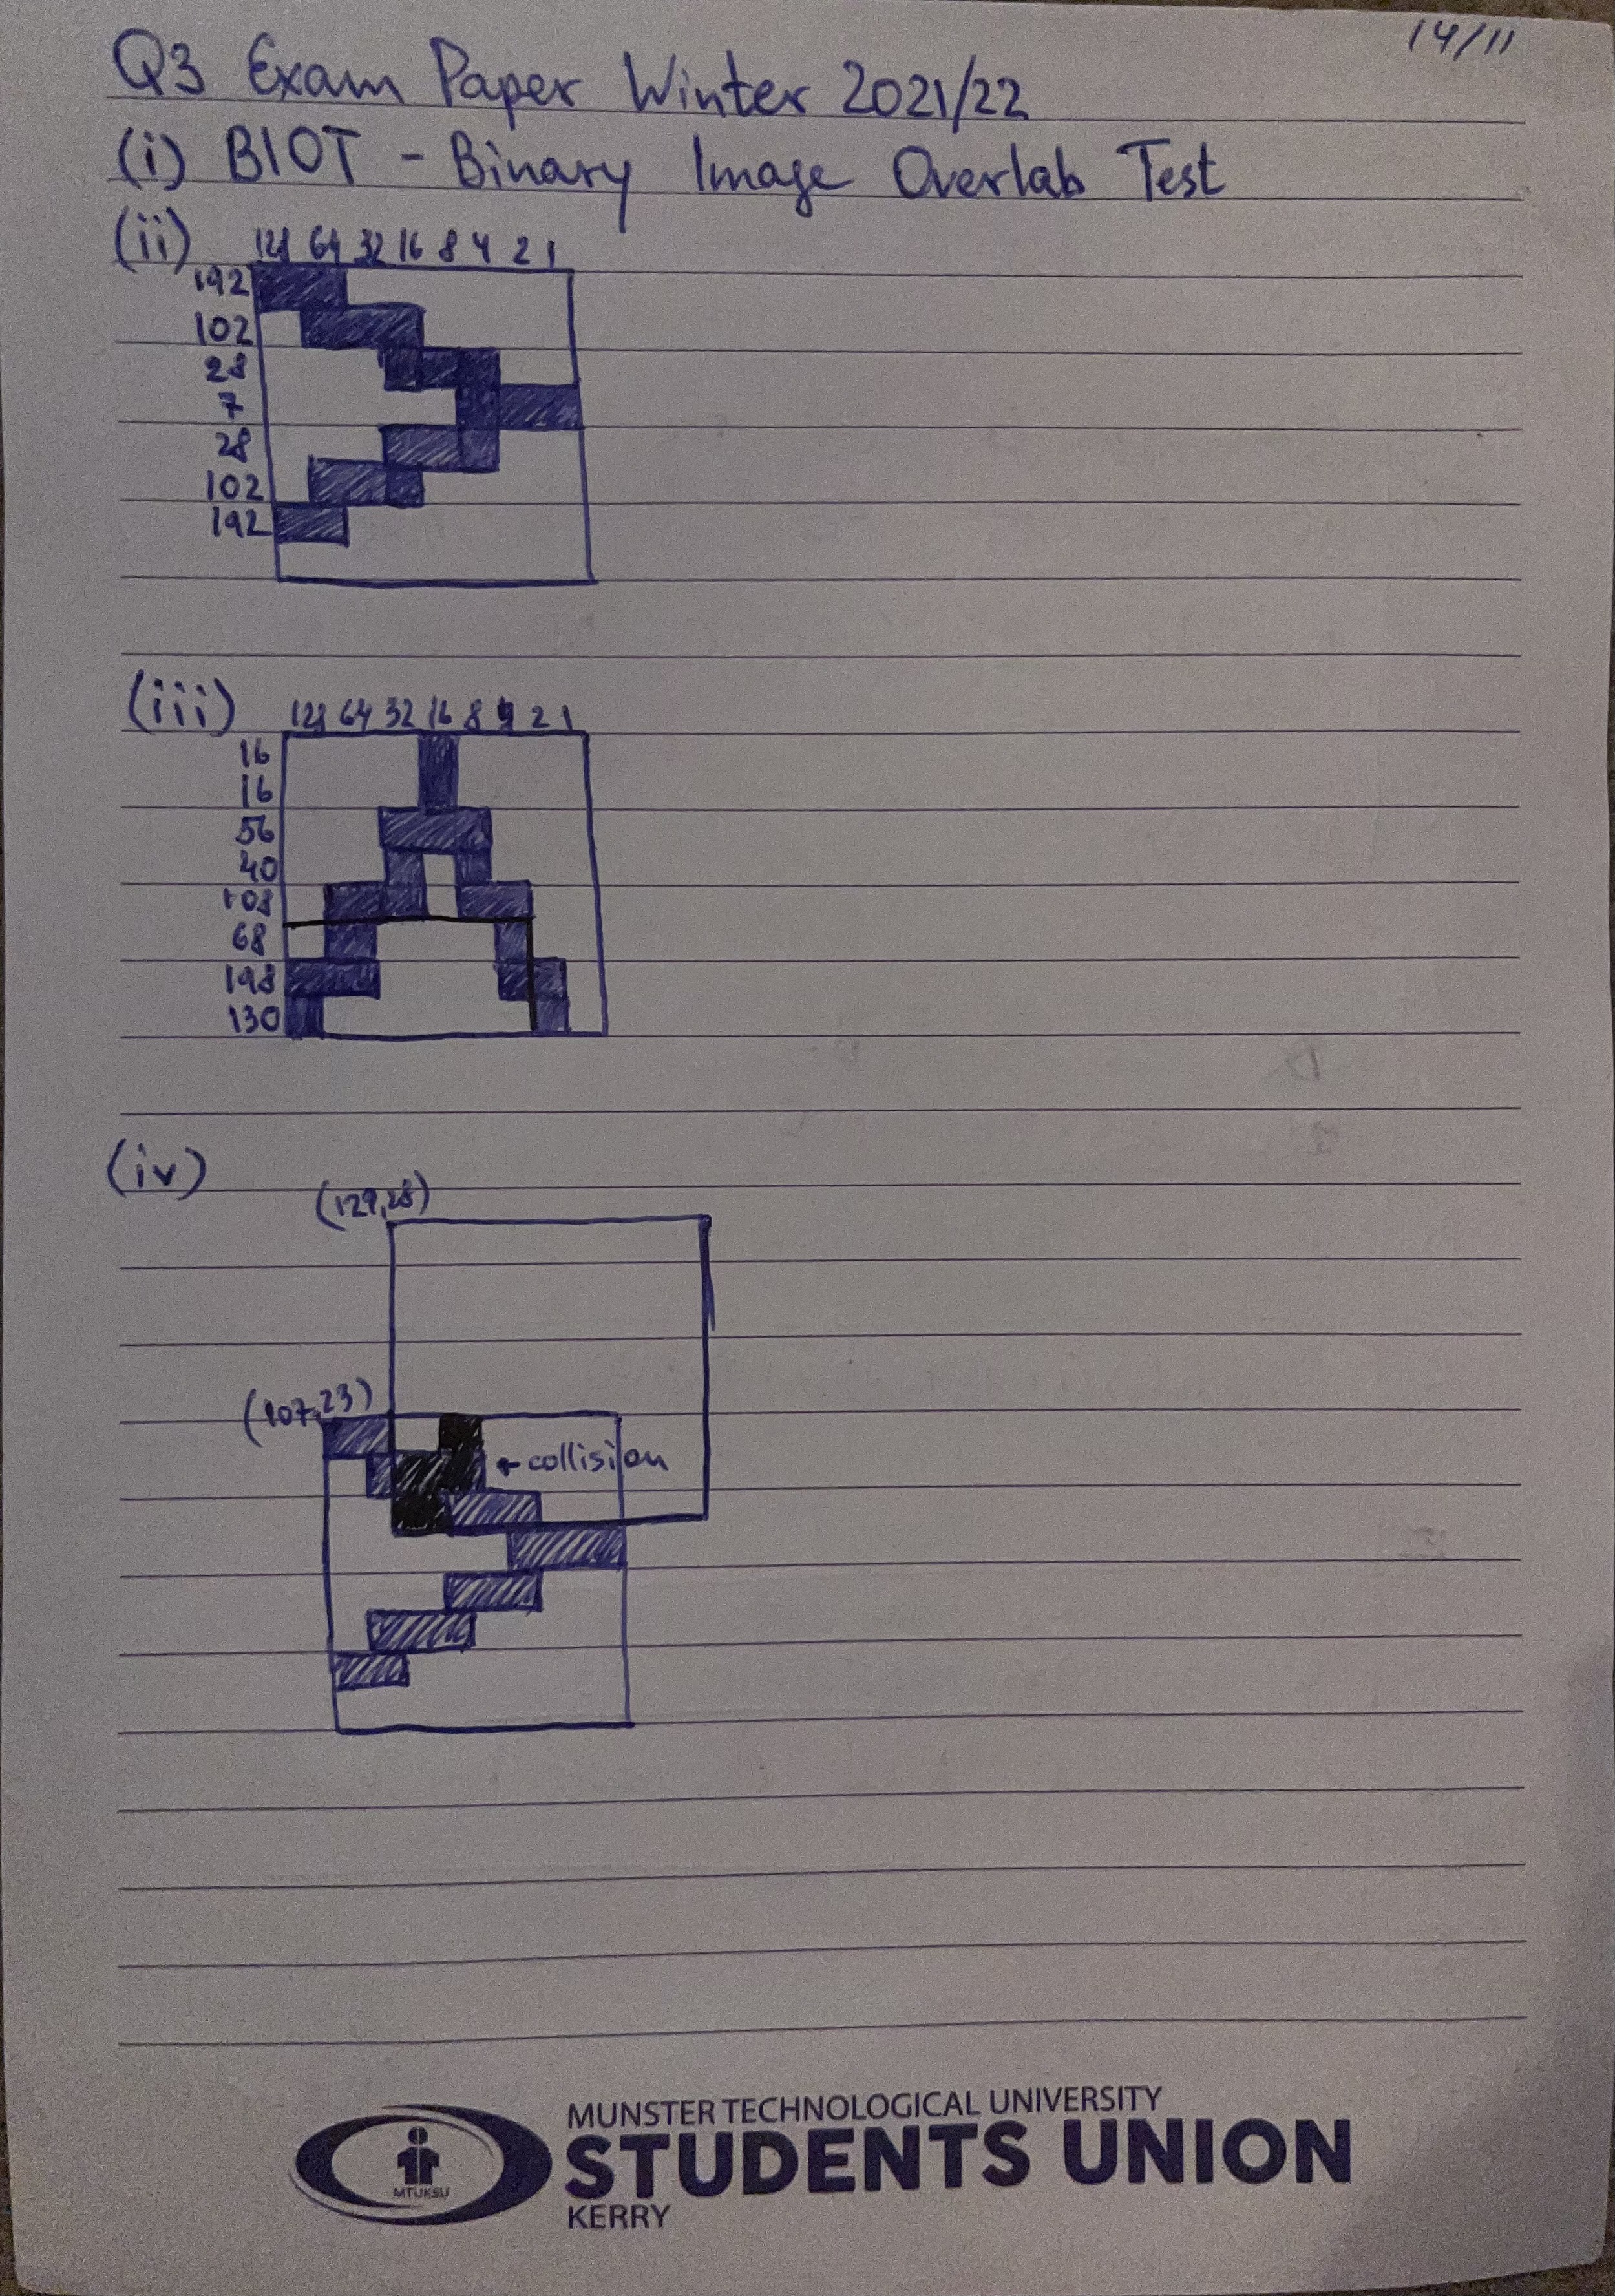 14/11
Q3 Exam Paper Winter 2021/22
(i) BIOT - Binary Image Overlab Test
(ii) 128 64 32 16 8 4 2 1
192
102
28
7
28
102
192
(iii) 128 64 32 16 8 4 2 1
16
16
56
40
108
68
198
130
(iv)
(129,28)
(107,23)
← collision
MUNSTER TECHNOLOGICAL UNIVERSITY
STUDENTS UNION
KERRY
MTUKSU